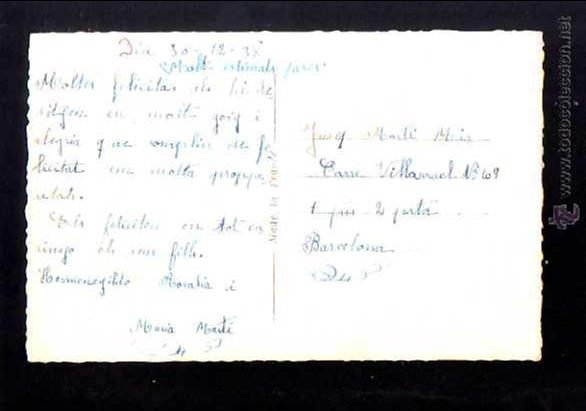 Dia 30-12-38
Molt estimats pares
Moltes felicitas els hi de
sitgem en molt goig i
alegria que cumplin de fe
licitat em molta prospe
ritats.
Els feliciten en tot ca
rinyo els seus fills.
Hermenegildo Rosalia i
Maria Marti
Josep Marti Mir
Carre Villarruel Nº 109
1 pis 2 porta
Barcelona
www.todocoleccion.net